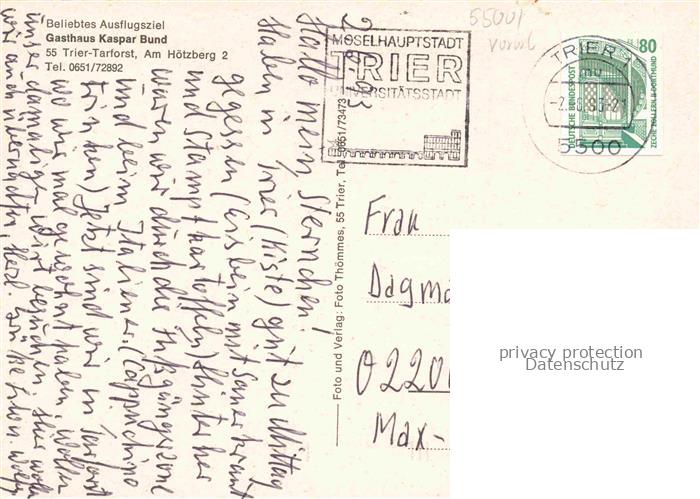 Beliebtes Ausflugsziel
Gasthaus Kaspar Bund
55 Trier-Tarforst, Am Hötzberg 2
Tel. 0651/72892
Hallo mein Sternchen!
Haben in Trier (Kiste) gut zu Mittag
gegessen (Eisbein mit Sauerkraut
und Stampfkartoffeln) Hinterher
waren wir durch die Fußgängerzone
und beim Italiener. (Cappuchino
trinken) Jetzt sind wir in Tarforst
wo wir mal gewohnt haben. Wollen
unser damaliger Wirt besuchen. Hier wollen
wir auch übernachten, Herzl. Grüße
Foto und Verlag: Foto Thömmes, 55 Trier, Tel. 0651/73473
MOSELHAUPTSTADT
TRIER
UNIVERSITÄTSSTADT
5500/
TRIER 1
5500
80
DEUTSCHE BUNDESPOST
ZECHE ZOLLERN II · DORTMUND
Frau
Dagma
0220
Max-
privacy protection
Datenschutz